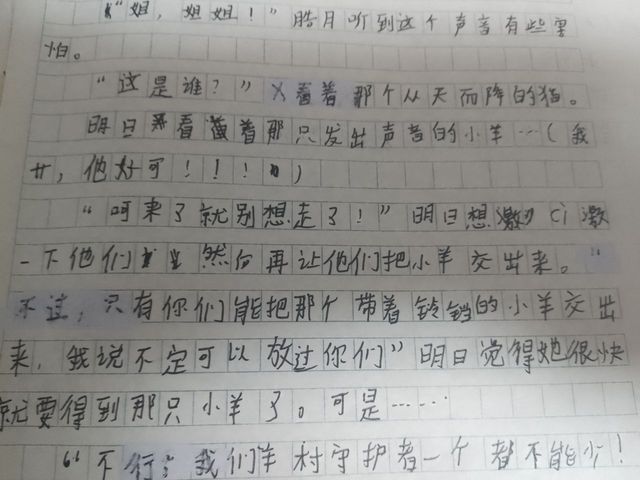 “姐，姐姐！”皓月听到这个声音有些害
怕。
“这是谁？”看着那个从天而降的猫。
明日看着那只发出声音的小羊…（我
廿，他好可！！！）
“呵来了就别想走了！”明日想激ci激
一下他们然后再让他们把小羊交出来。“
不过，只有你们能把那个带着铃铛的小羊交出
来，我说不定可以放过你们”明日觉得她很快
就要得到那只小羊了。可是……
“不行；我们羊村守护者一个都不能少！